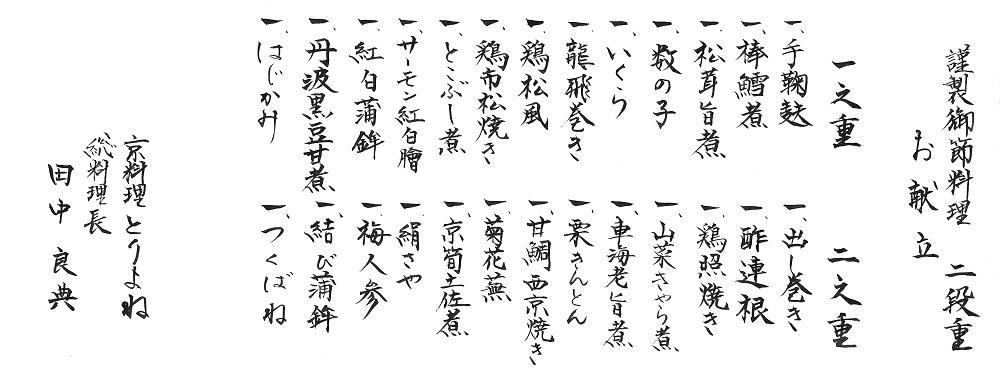 謹製御節料理 二段重
お献立
一之重
一、手鞠麸
一、棒鱈煮
一、松茸旨煮
一、数の子
一、いくら
一、龍飛巻き
一、鶏松風
一、鶏市松焼き
一、とこぶし煮
一、サーモン紅白膾
一、紅白蒲鉾
一、丹波黒豆甘煮
一、はじかみ
二之重
一、出し巻き
一、酢連根
一、鶏照焼き
一、山菜きゃら煮
一、車海老旨煮
一、栗きんとん
一、甘鯛西京焼き
一、菊花蕪
一、京筍土佐煮
一、絹さや
一、梅人参
一、結び蒲鉾
一、つくばね
京料理とりよね
総料理長
田中良典